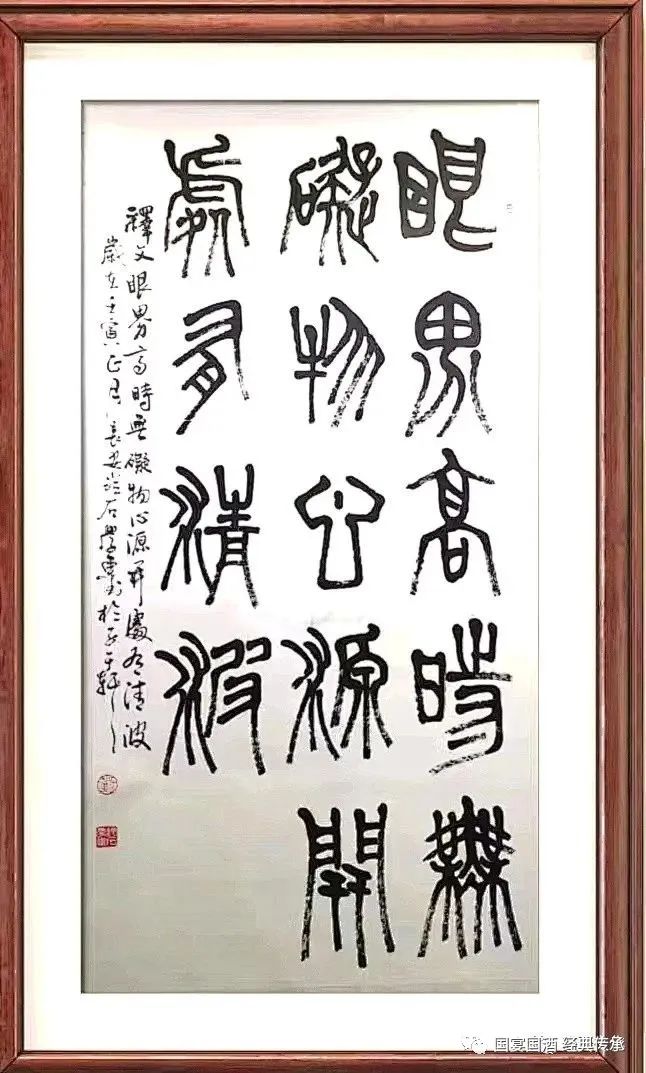 眼界高時無
礙物心源開
處有清波
釋文眼界高時無礙物心源開處有清波
歲在壬寅正月長安石學書於軒
国宴国酒 经典传承